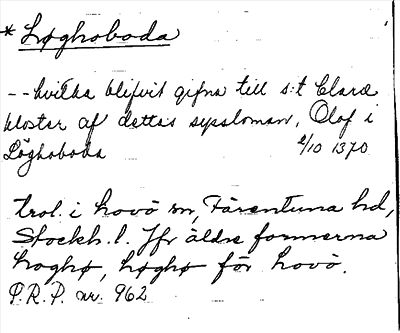 * Løghoboda
-- hvilka blifvit gifna till s:t Claræ
kloster af dettas syssloman, Olof i
Løghoboda 2/10 1370
trol. i Lovö sn, Färentuna hd,
Stockh. l. Jfr äldre formerna
Loghø, Løghø för Lovö.
P.R.P. nr. 962